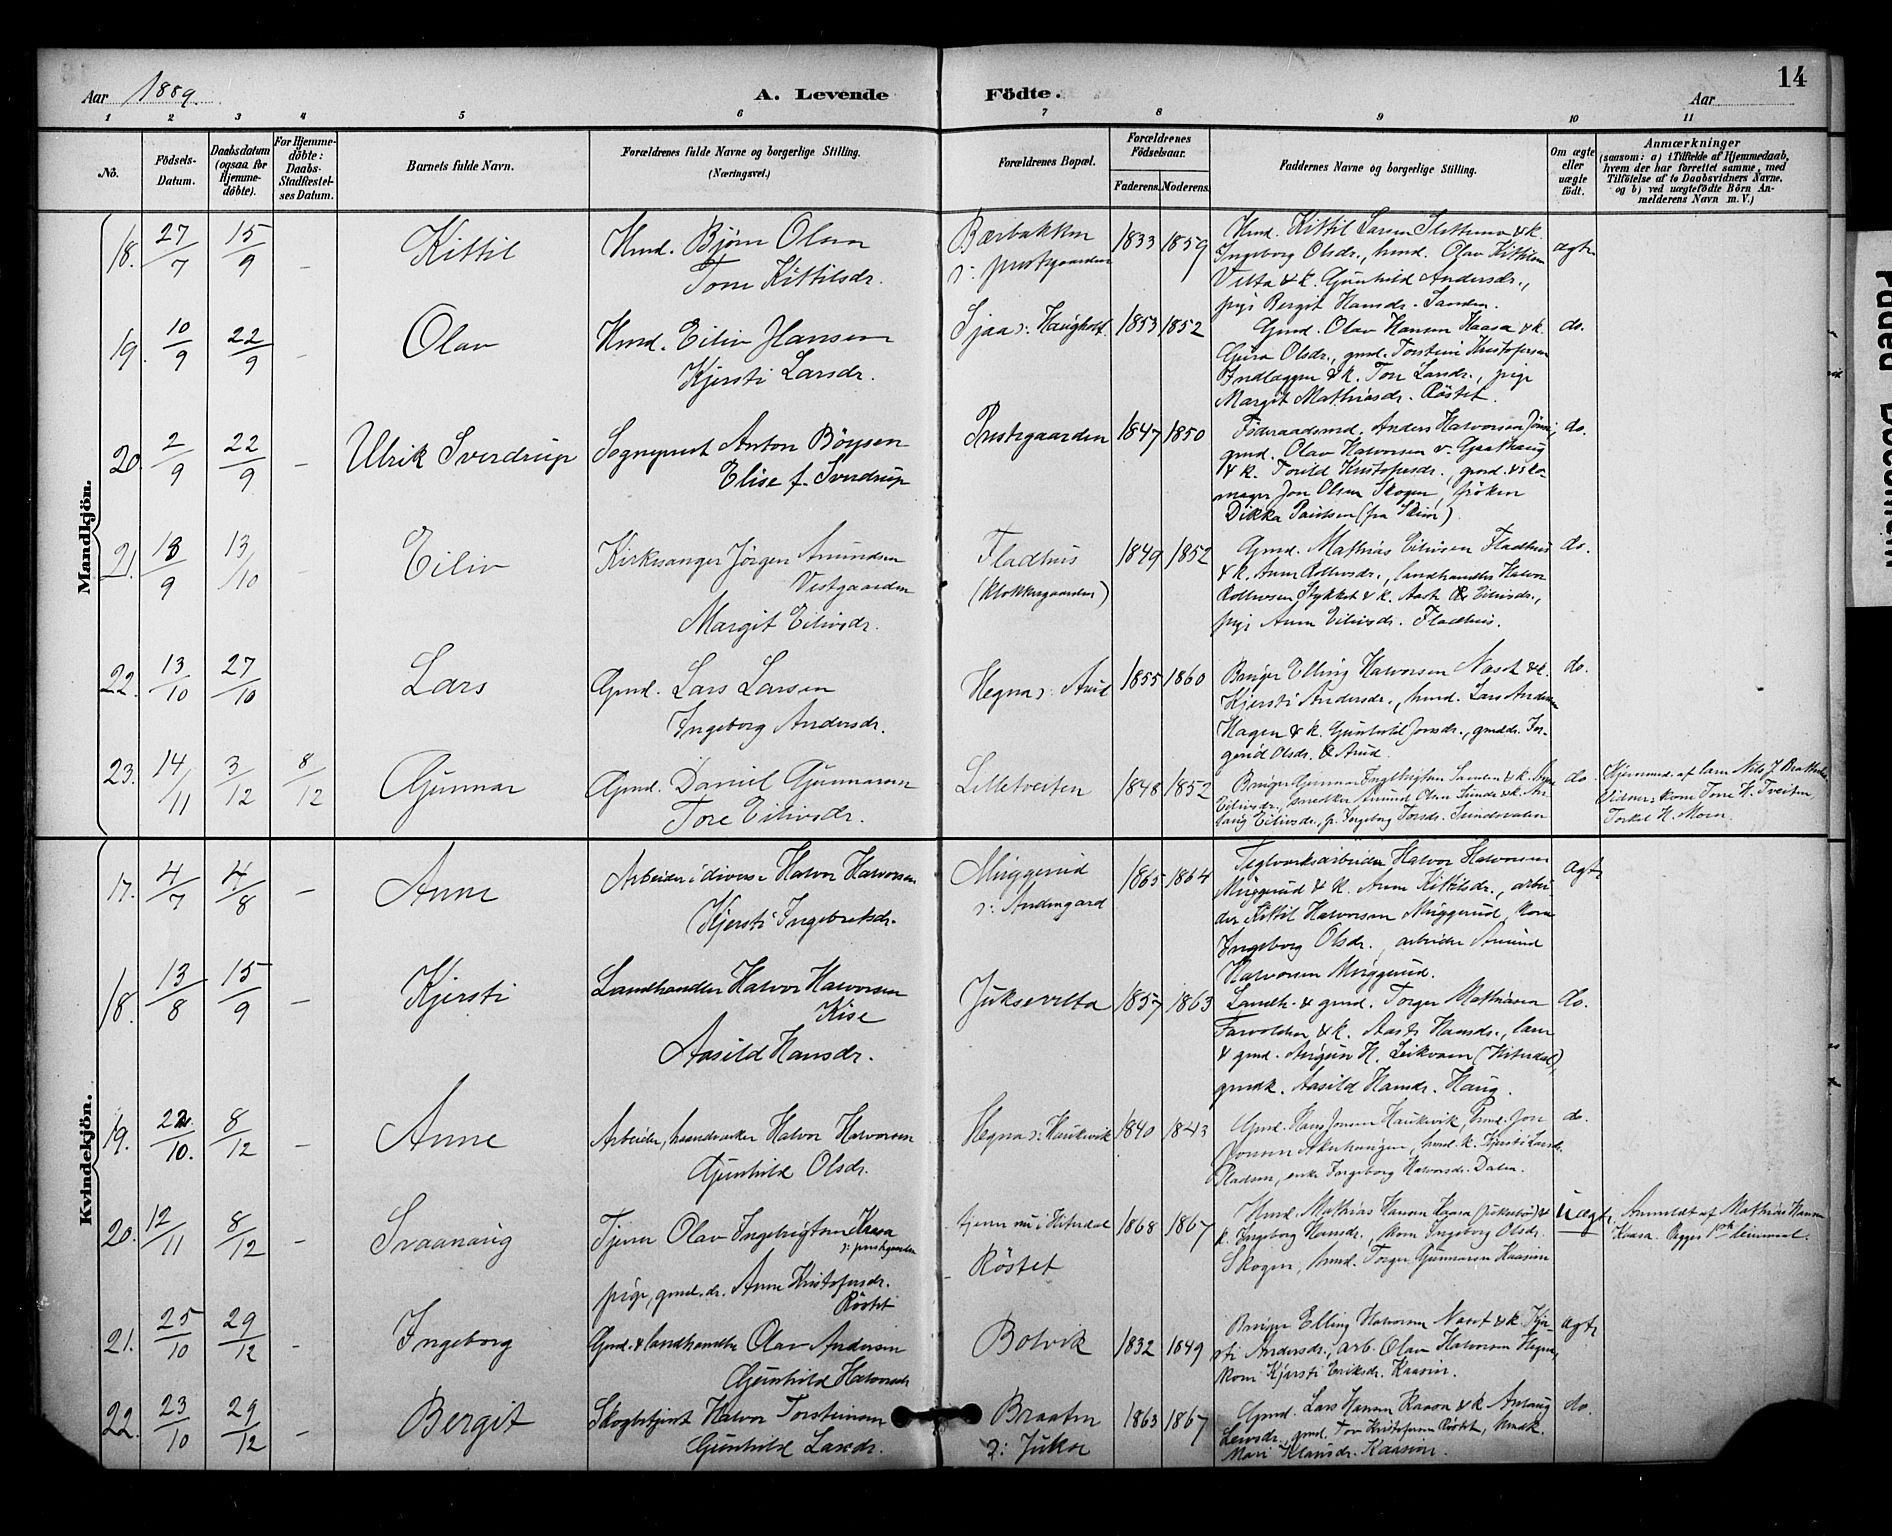 14
Aar 1889.
A. Levende Födte.
Aar
1 2 3 4 5 6 7 8 9 10 11
No. Födsels-Datum. Daabsdatum (ogsaa for Hjemme-döbte). For Hjemme-döbte: Daabs-Stadfæstel-ses Datum. Barnets fulde Navn. Forældrenes fulde Navne og borgerlige Stilling. (Næringsvei.) Forældrenes Bopæl. Forældrenes Födselsaar. Faderens. Moderens. Faddernes Navne og borgerlige Stilling. Om ægte eller uægte födt. Anmærkninger (saasom: a) i Tilfælde af Hjemmedaab, hvem der har forrettet samme, med Tilföielse af to Daabsvidners Navne. og b) ved uægtefödte Börn An-melderens Navn m. V.)
Mandkjön.
18. 27/7 15/9 - Kittil
Hmd. Bjørn Olsen
Tone Kittilsdr.
Bærbakken
ɔ: prestgaarden
1833 1859
Hmd. Kittil Larsen Slettemo & k.
Ingeborg Olsdr., hmd. Olav Kittilsen
Velta & k. Gunhild Andersdr.,
pige Bergit Hansdr. Sanden.
ægte
19. 10/9 22/9 - Olav
Hmd. Eiliv Hansen
Kjersti Larsdr.
Sjaa ɔ: Haugholt
1853 1852
Gmd. Olav Hansen Kaasa & k.
Guro Olsdr., gmd. Torstein Kristofersen
Indlæggen & k. Tone Larsdr., pige
Margit Mathisdr. Röstet.
do.
20. 2/9 22/9 - Ulrik Sverdrup
Sogneprest Anton Böysen
Elise f. Sverdrup
Prestegaarden
1847 1850
Föderaadsmd. Anders Halvorsen
gmd. Olav Halvorsen
& k. Torild Kristofersdr., gmd. & sko-
mager Jon Olsen Skogen, fröken
Dikka Paulsen (fra Skien).
do.
21. 18/9 13/10 - Eiliv
Kirkesanger Jörgen Amundsen
Vestgaarden
Margit Eilivsdr.
Fladhus
(Klokkergaarden)
1849 1852
Gmd. Mathias Eilivsen Fladhus
& k. Anne Rollivsdr., landhandler Halvor
Rollivsen Stykket & k. Aaste Eilivsdr.,
pige Anne Eilivsdr. Fladhus.
do.
22. 13/10 27/10 Lars
Gmd. Lars Larsen
Ingeborg Andersdr.
Hegna ɔ: Arud
1855 1860
Bruger Elling Halvorsen Næset & k.
Kjersti Andersdr., hmd. Lars Andersen
Hagen & k. Gunhild Jonsdr., gmddr. In-
gerid Olsdr. Arud
do.
23. 14/11 3/12 8/12 Gunnar
Gmd. Daniel Gunnarsen
Tore Eilivsdr.
Lilletveiten
1848 1852
Bruger Gunnar Ingebrigtsen Sanden & k. Signe
Eilivsdr., snedker Amund Olsen Sunde & k. As-
laug Eilivsdr., p. Ingeborg Torsdr. Sundsvalen
do.
Hjemmed. af lærer Nils J. Bratholm
Vidner: kone Tone H. Tveiten,
Torkel H. Moen.
Kvindekjön.
17. 4/7 4/8 - Anne
Arbeider i diverse Halvor Halvorsen
Kjersti Ingebretsdr.
Muggerud
ɔ: Andengard
1865 1864
Teglverksarbeider Halvor Halvorsen
Muggerud & k. Anne Kittilsdr., arbei-
der Kittil Halvorsen Muggerud, kone
Ingeborg Olsdr., arbeider Amund
Halvorsen Muggerud.
ægte
18. 13/8 15/9 - Kjersti
Landhandler Halvor Halvorsen
Kise
Aasild Hansdr.
Juksevelta
1857 1863
Landh. & gmd. Torger Mathisen
Farvolden & k. Aaste Hansdr., lærer
& gmd. H. Leikvam (Hiterdal),
gmdk. Aasild Hansdr. Haug.
do.
19. 22/10. 8/12 - Anne
Arbeider, haandverker Halvor Halvorsen
Gunhild Olsdr.
Hegna ɔ: Haukvik
1840 1843
Gmd. Hans Jonsen Haukvik, hmd. Jon
Jonsen, hmd. k. Kjersti Larsdr.
Pladsen, enke Ingeborg Halvorsdr. Dalen.
do.
20. 12/11 8/12 - Svaanaug
Tjener Olav Ingebrigtsen Kaasa
ɔ: prestgaarden
pige, gmd.dr. Anne Kristofersdr.
Röstet
tjener nu i Hiterdal
Röstet
1868 1867
Hmd. Mathias Hansen Kaasa (Juksebö) &
k. Ingeborg Hansdr., kone Ingeborg Olsdr.
Skogen, hmd. Torger Gunnarsen Kaasin
Uægte
Anmeldt af Mathias Hansen
Kaasa. Begges 1ste leiermaal.
21. 25/10 29/12 - Ingeborg
Gmd. & landhandler Olav Andersen
Gunhild Halvorsdr
Bolvik
1832 1849
Bruger Elling Halvorsen Næset & k. Kjer-
sti Andersdr., arb. Olav Halvorsen Hegna,
kone Kjersti Eriksdr. Kaasin.
ægte
22. 23/10 29/12 - Bergit
Skogbetjent Halvor Torsteinsen
Gunhild Larsdr.
Braaten
ɔ: Jukse
1863 1867
Gmd. Lars Hansen Kaasa & k. Aslaug
Leivsdr., gmd. Tor Kristofersen Röstet, hmdk.
Mari Klausdr. Kaasin.
do.